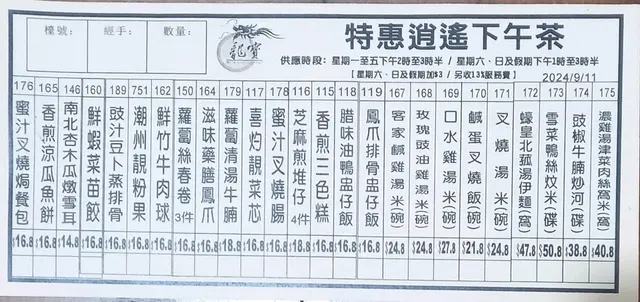 檯號：
經手：
數量：
龍寶
特惠逍遙下午茶
供應時段：星期一至五下午2時至3時半 / 星期六、日及假期下午1時至3時半
【星期六、日及假期加$3 / 另收13%服務費】
2024/9/11
175 濃雞湯津菜肉絲窩米(窩) $40.8
174 豉椒牛腩炒河(碟) $38.8
173 雪菜鴨絲炆米(碟) $50.8
172 蠔皇北菰湯伊麵(窩) $47.8
171 叉燒湯米(碗) $24.8
170 鹹蛋湯米(碗) $21.8
169 口水雞湯米(碗) $27.8
168 玫瑰豉油雞湯米(碗) $24.8
167 客家鹹雞湯米(碗) $24.8
119 鳳爪排骨盅仔飯 $16.8
118 臘味油鴨盅仔飯 $16.8
115 香煎三色糕 $16.8
116 芝麻煎堆仔 4件 $16.8
178 蜜汁叉燒腸 $18.8
117 喜灼靚菜心 $16.8
179 蘿蔔清湯牛腩 $18.8
164 滋味藥膳鳳爪 $16.8
150 蘿蔔絲春卷 3件 $16.8
162 鮮竹牛肉球 $16.8
751 潮州靚粉果 $16.8
189 豉汁豆卜蒸排骨 $16.8
160 鮮蝦菜苗餃 $16.8
146 南北杏木瓜燉雪耳 $14.8
165 香煎涼瓜魚餅 $16.8
176 蜜汁叉燒焗餐包 $16.8